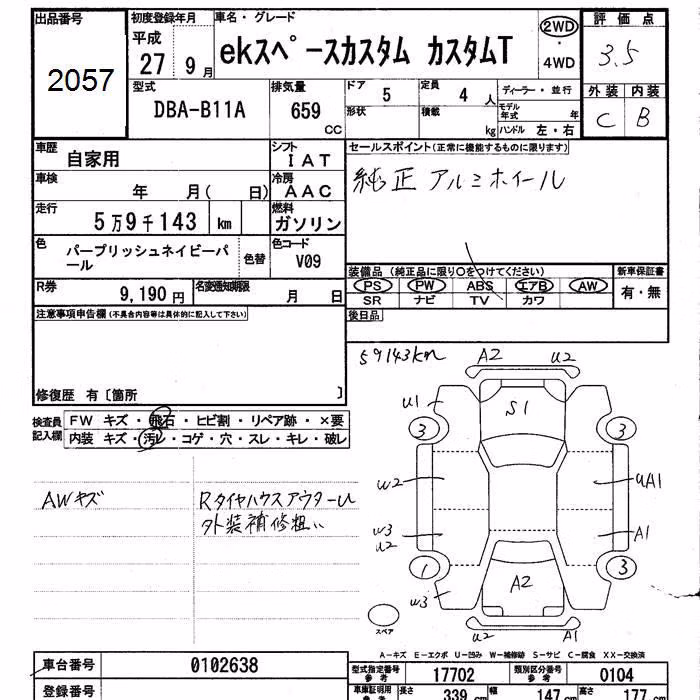 出品番号
2057
初度登録年月
平成
27 9月
車名・グレード
ekスペースカスタム カスタムT
2WD
・
4WD
評価点
3.5
外装 内装
C B
型式
DBA-B11A
排気量
659
CC
ドア
5
形状
定員
4 人
積載
kg
ディーラー・並行
モデル年式 年
ハンドル 左・右
車歴
自家用
シフト
IAT
車検
年 月( 日)
冷房
AAC
走行
5万9千143 km
燃料
ガソリン
色
パープリッシュネイビーパール
色替
色コード
V09
R券
9,190 円
名変通知期限
月 日
セールスポイント(正常に機能するものに限ります)
純正アルミホイール
装備品(純正品に限り〇をつけてください)
PS PW ABS エアB AW
SR ナビ TV カワ
新車保証書
有・無
後日品
注意事項申告欄(不具合内容等は具体的に記入して下さい)
修復歴 有〔箇所 〕
検査員
記入欄
FW キズ・飛石・ヒビ割・リペア跡・×要
内装 キズ・汚レ・コゲ・穴・スレ・キレ・破レ
AWキズ
RタイヤハウスアウターU
外装補修粗い
59143km
A2 U2
U1
S1
3 3
W2
UA1
W3
U2
A1
1
A2
3
W3
スペア
U2 A1
A-キズ E-エクボ U-凹み W-補修跡 S-サビ C-腐食 XX-交換済
車台番号
0102638
登録番号
型式指定番号
参考
17702
類別区分番号
参考
0104
車庫証明用
参考
長さ
339 cm
幅
147 cm
高さ
177 cm